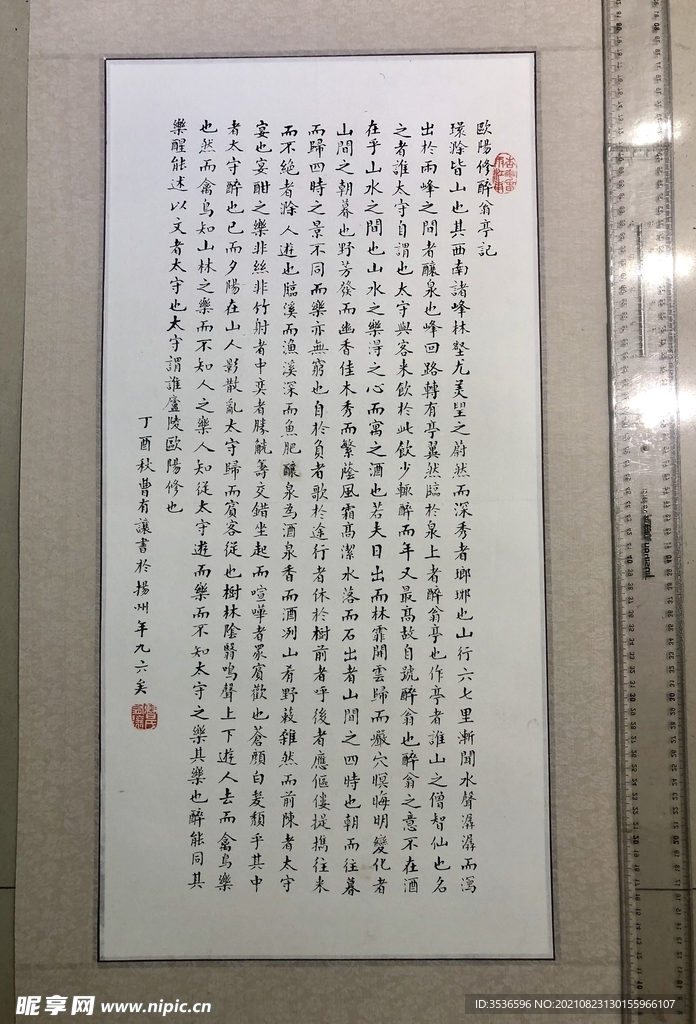 歐陽修醉翁亭記
環滁皆山也其西南諸峰林壑尤美望之蔚然而深秀者瑯琊也山行六七里漸聞水聲潺潺而瀉
出於兩峰之間者釀泉也峰回路轉有亭翼然臨於泉上者醉翁亭也作亭者誰山之僧智仙也名
之者誰太守自謂也太守與客來飲於此飲少輒醉而年又最高故自號醉翁也醉翁之意不在酒
在乎山水之間也山水之樂得之心而寓之酒也若夫日出而林霏開雲歸而巖穴暝晦明變化者
山間之朝暮也野芳發而幽香佳木秀而繁蔭風霜高潔水落而石出者山間之四時也朝而往暮
而歸四時之景不同而樂亦無窮也自於負者歌於途行者休於樹前者呼後者應傴僂提攜往来
而不絕者滁人遊也臨溪而漁溪深而魚肥釀泉為酒泉香而酒冽山肴野蔌雜然而前陳者太守
宴也宴酣之樂非絲非竹射者中奕者勝觥籌交錯坐起而喧嘩者眾賓歡也蒼顏白髮頹乎其中
者太守醉也已而夕陽在山人影散亂太守歸而賓客從也樹林陰翳鳴聲上下遊人去而禽鳥樂
也然而禽鳥知山林之樂而不知人之樂人知從太守遊而樂而不知太守之樂其樂也醉能同其
樂醒能述以文者太守也太守謂誰廬陵歐陽修也
丁酉秋曹有讓書於揚州年九六矣
昵享网 www.nipic.cn
ID:3536596 NO:20210823130155966107